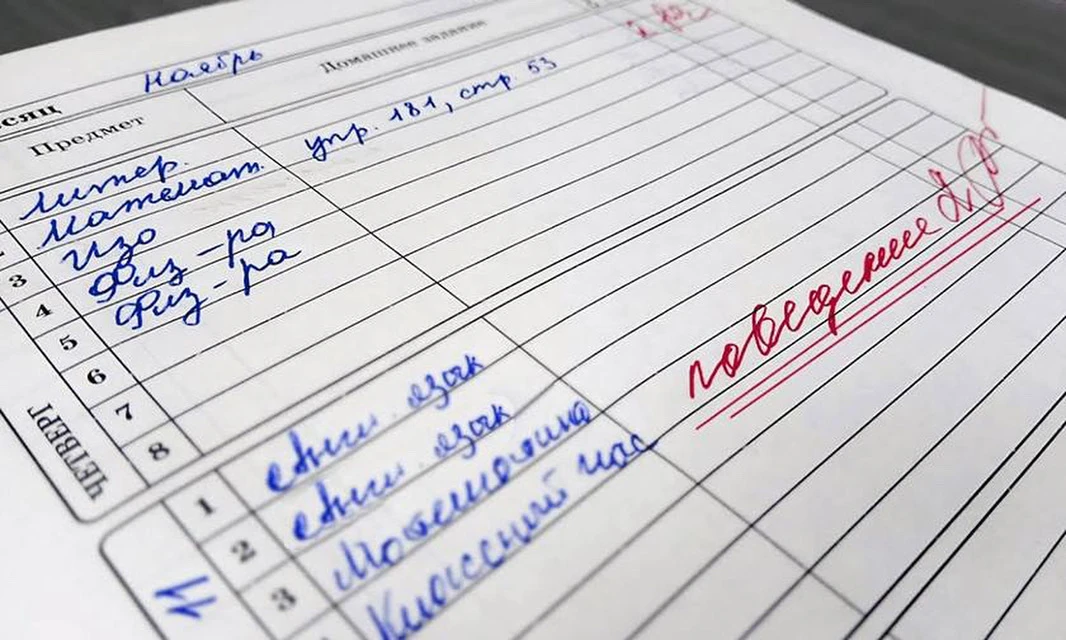 есяц Ноябрь
Предмет Домашнее задание
Литер.
Математ. упр. 181, стр. 53
3 Изо
4 Физ-ра
5 Физ-ра
6
7
8
ЧЕТВЕРГ
поведение 2
1 Англ. язык
2 Англ. язык
3 Математика
Классный час
11